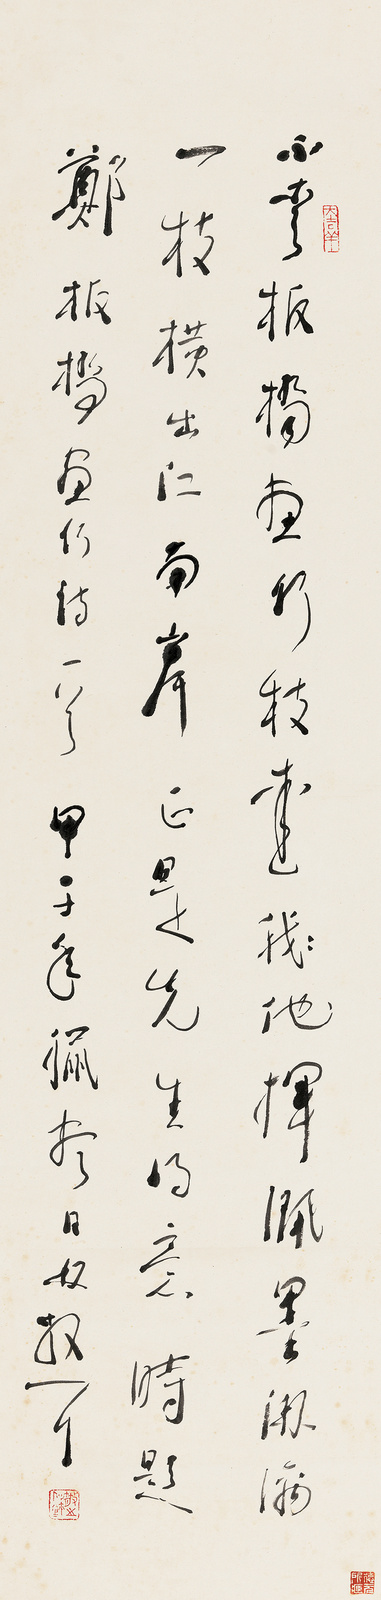 大吉羊
不愛板橋畫竹枝我他揮灑墨淋漓
一枝橫出江南岸正是先生得意時題
鄭板橋畫竹詩一首甲子年臘日散耳